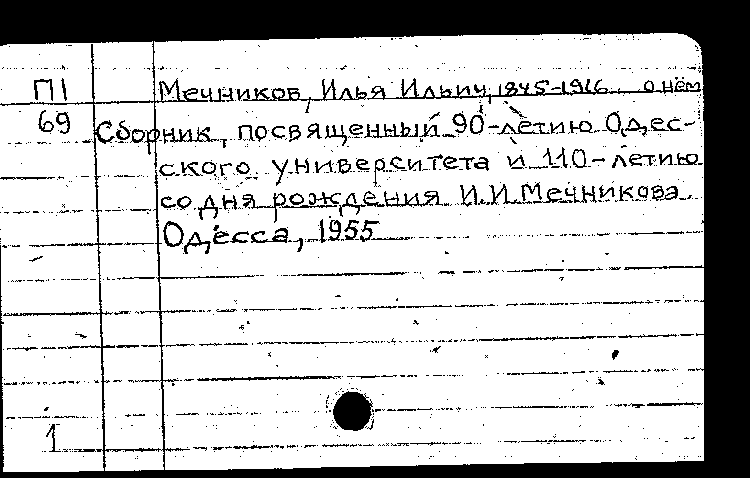 П1 Мечников, Илья Ильич, 1845-1916. о нём
69 Сборник, посвященный 90-летию Одес-
ского университета и 110-летию
со дня рождения И.И.Мечникова.
Одесса, 1955
1